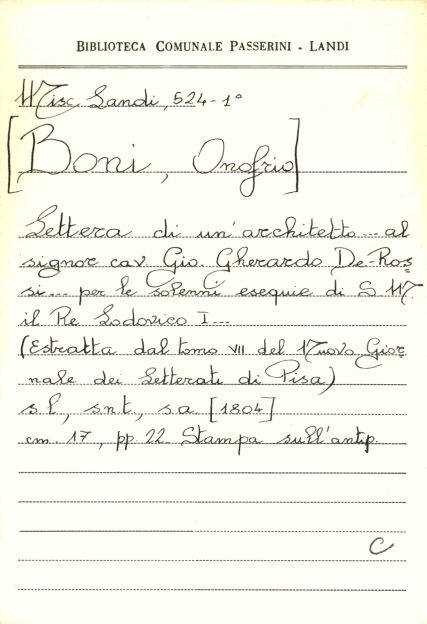 BIBLIOTECA COMUNALE PASSERINI - LANDI
Misc. Landi, 524-1°
[Boni, Onofrio]
Lettera di un'architetto... al
signor cav. Gio. Gherardo De-Ros=
si... per le solenni esequie di S. M.
il Re Lodovico I...
(Estratta dal tomo VII del Nuovo Gior=
nale dei Letterati di Pisa)
s.l., s.n.t., s.a. [1804]
cm. 17, pp. 22. Stampa sull'antip.
C